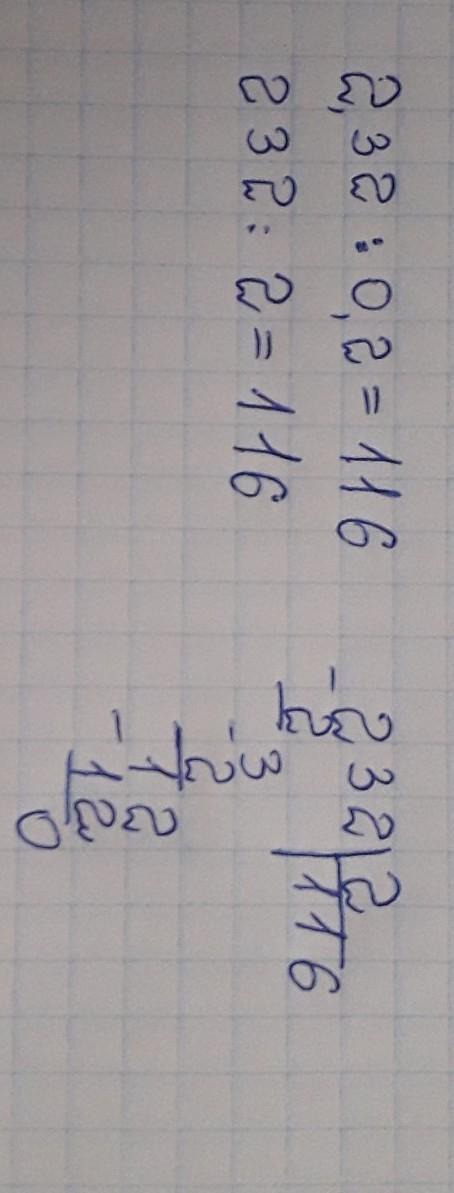 2,32 : 0,2 = 116
232 : 2 = 116
-232|2
2 116
-3
2
-12
12
0